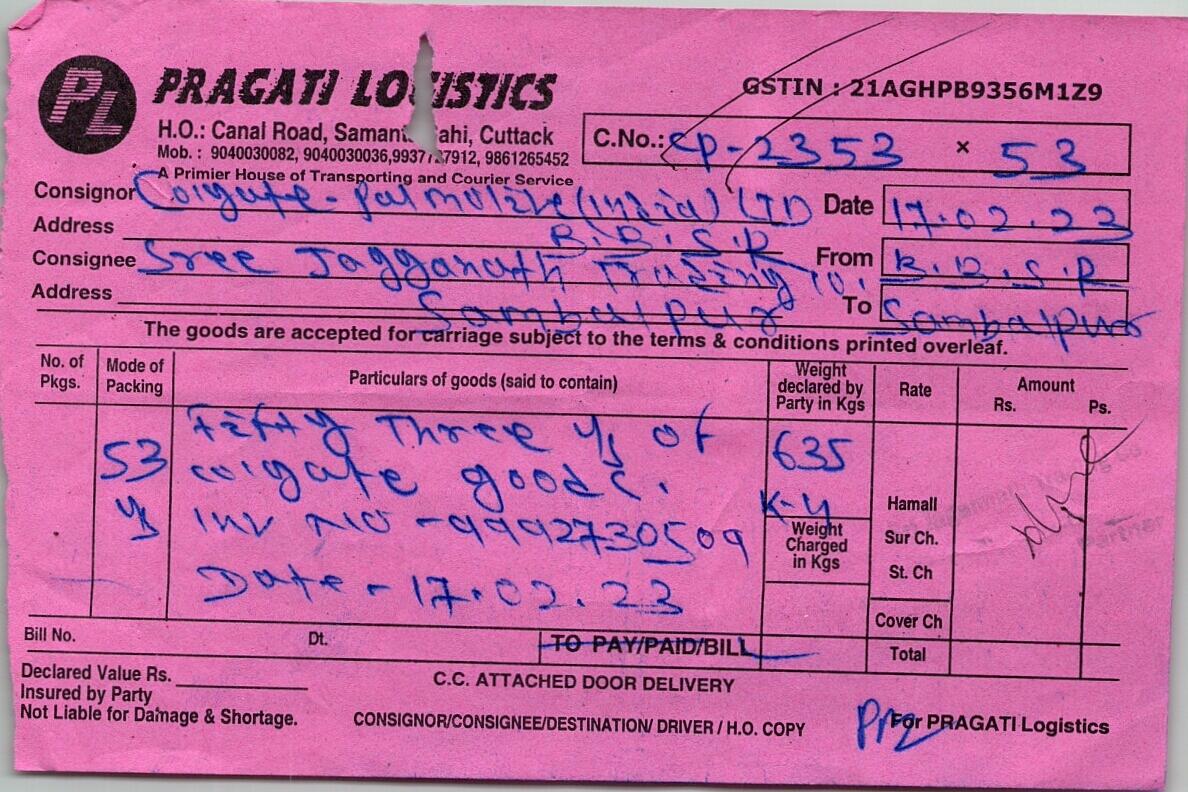 PL
PRAGATI LOGISTICS
GSTIN : 21AGHPB9356M1Z9
H.O.: Canal Road, Cuttack
Mob. : 9040030082, 9040030036, 9861265452
A Primier House of Transporting and Courier Service
C.No.: CP-2353 × 53
Consignor Colgate-Palmolive (India) LTD
Date 17.02.23
Address B.B.S.R
Consignee Sree Jagganath Trading Co.
From B.B.S.R
Address Sambalpur
To Sambalpur
The goods are accepted for carriage subject to the terms & conditions printed overleaf.
No. of Pkgs. Mode of Packing Particulars of goods (said to contain) Weight declared by Party in Kgs Rate Amount Rs. Ps.
53 Fifty Three of 635
colgate goods. K-g
INV NO -9992730509
Date - 17.02.23
Weight Charged in Kgs
Hamall
Sur Ch.
St. Ch
Cover Ch
Total
Bill No. Dt. TO PAY/PAID/BILL
Declared Value Rs.
Insured by Party
Not Liable for Damage & Shortage.
C.C. ATTACHED DOOR DELIVERY
CONSIGNOR/CONSIGNEE/DESTINATION/ DRIVER / H.O. COPY
For PRAGATI Logistics